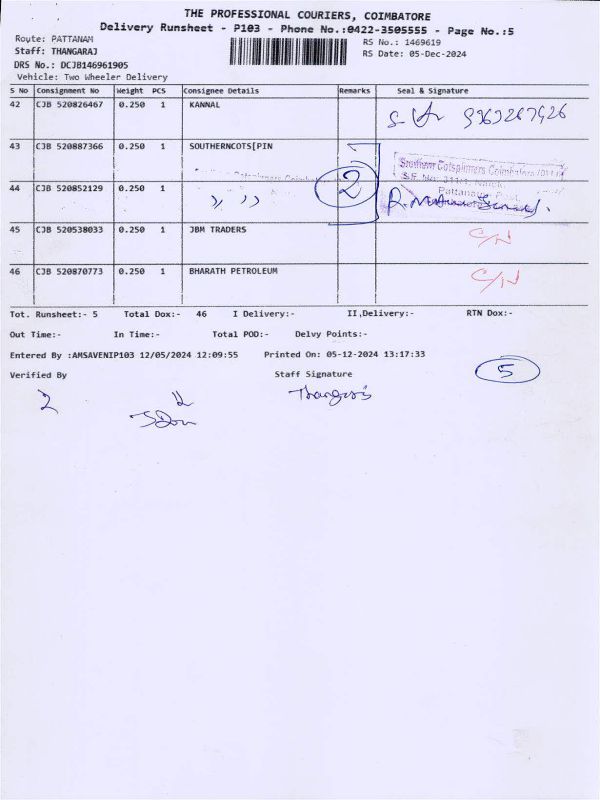 THE PROFESSIONAL COURIERS, COIMBATORE
Delivery Runsheet - P103 - Phone No.:0422-3505555 - Page No.:5
Route: PATTANAM
RS No.: 1469619
Staff: THANGARAJ
RS Date: 05-Dec-2024
DRS No.: DCJB146961905
Vehicle: Two Wheeler Delivery
S No Consignment No Weight PCS Consignee Details Remarks Seal & Signature
42 CJB 520826467 0.250 1 KANNAL
43 CJB 520887366 0.250 1 SOUTHERNCOTS[PIN
Southern Cotspinners Coimbatore
2
44 CJB 520852129 0.250 1 ,, ,,
Pattanam Post
45 CJB 520538033 0.250 1 JBM TRADERS C/N
46 CJB 520870773 0.250 1 BHARATH PETROLEUM C/N
Tot. Runsheet:- 5 Total Dox:- 46 I Delivery:- II,Delivery:- RTN Dox:-
Out Time:- In Time:- Total POD:- Delvy Points:-
Entered By :AMSAVENIP103 12/05/2024 12:09:55 Printed On: 05-12-2024 13:17:33
Verified By Staff Signature
5
2